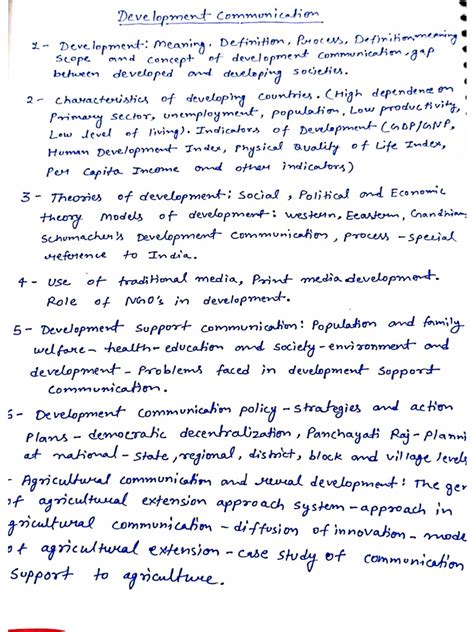 Development Communication
1- Development: Meaning, Definition, Process, Definition, meaning
Scope and concept of development communication, gap
between developed and developing societies.
2- Characteristics of developing countries. (High dependence on
Primary Sector, unemployment, population, Low productivity,
Low level of living). Indicators of Development (GDP/GNP,
Human Development Index, Physical Quality of Life Index,
Per Capita Income and other indicators)
3- Theories of development: Social, Political and Economic
theory models of development: western, Eeastern, Gandhian,
Schumacher's Development Communication, process - special
reference to India.
4- Use of traditional media, Print media development.
Role of NGO's in development.
5- Development Support communication: Population and family
welfare - health - education and society - environment and
development - Problems faced in development Support
Communication.
6- Development communication policy - strategies and action
Plans - democratic decentralization, Panchayati Raj - Planni
at national - State, regional, district, block and village levels
- Agricultural communication and rural development: The gen
of agricultural extension approach system - approach in
gricultural communication - diffusion of innovation - mode
of agricultural extension - case study of communication
Support to agriculture.